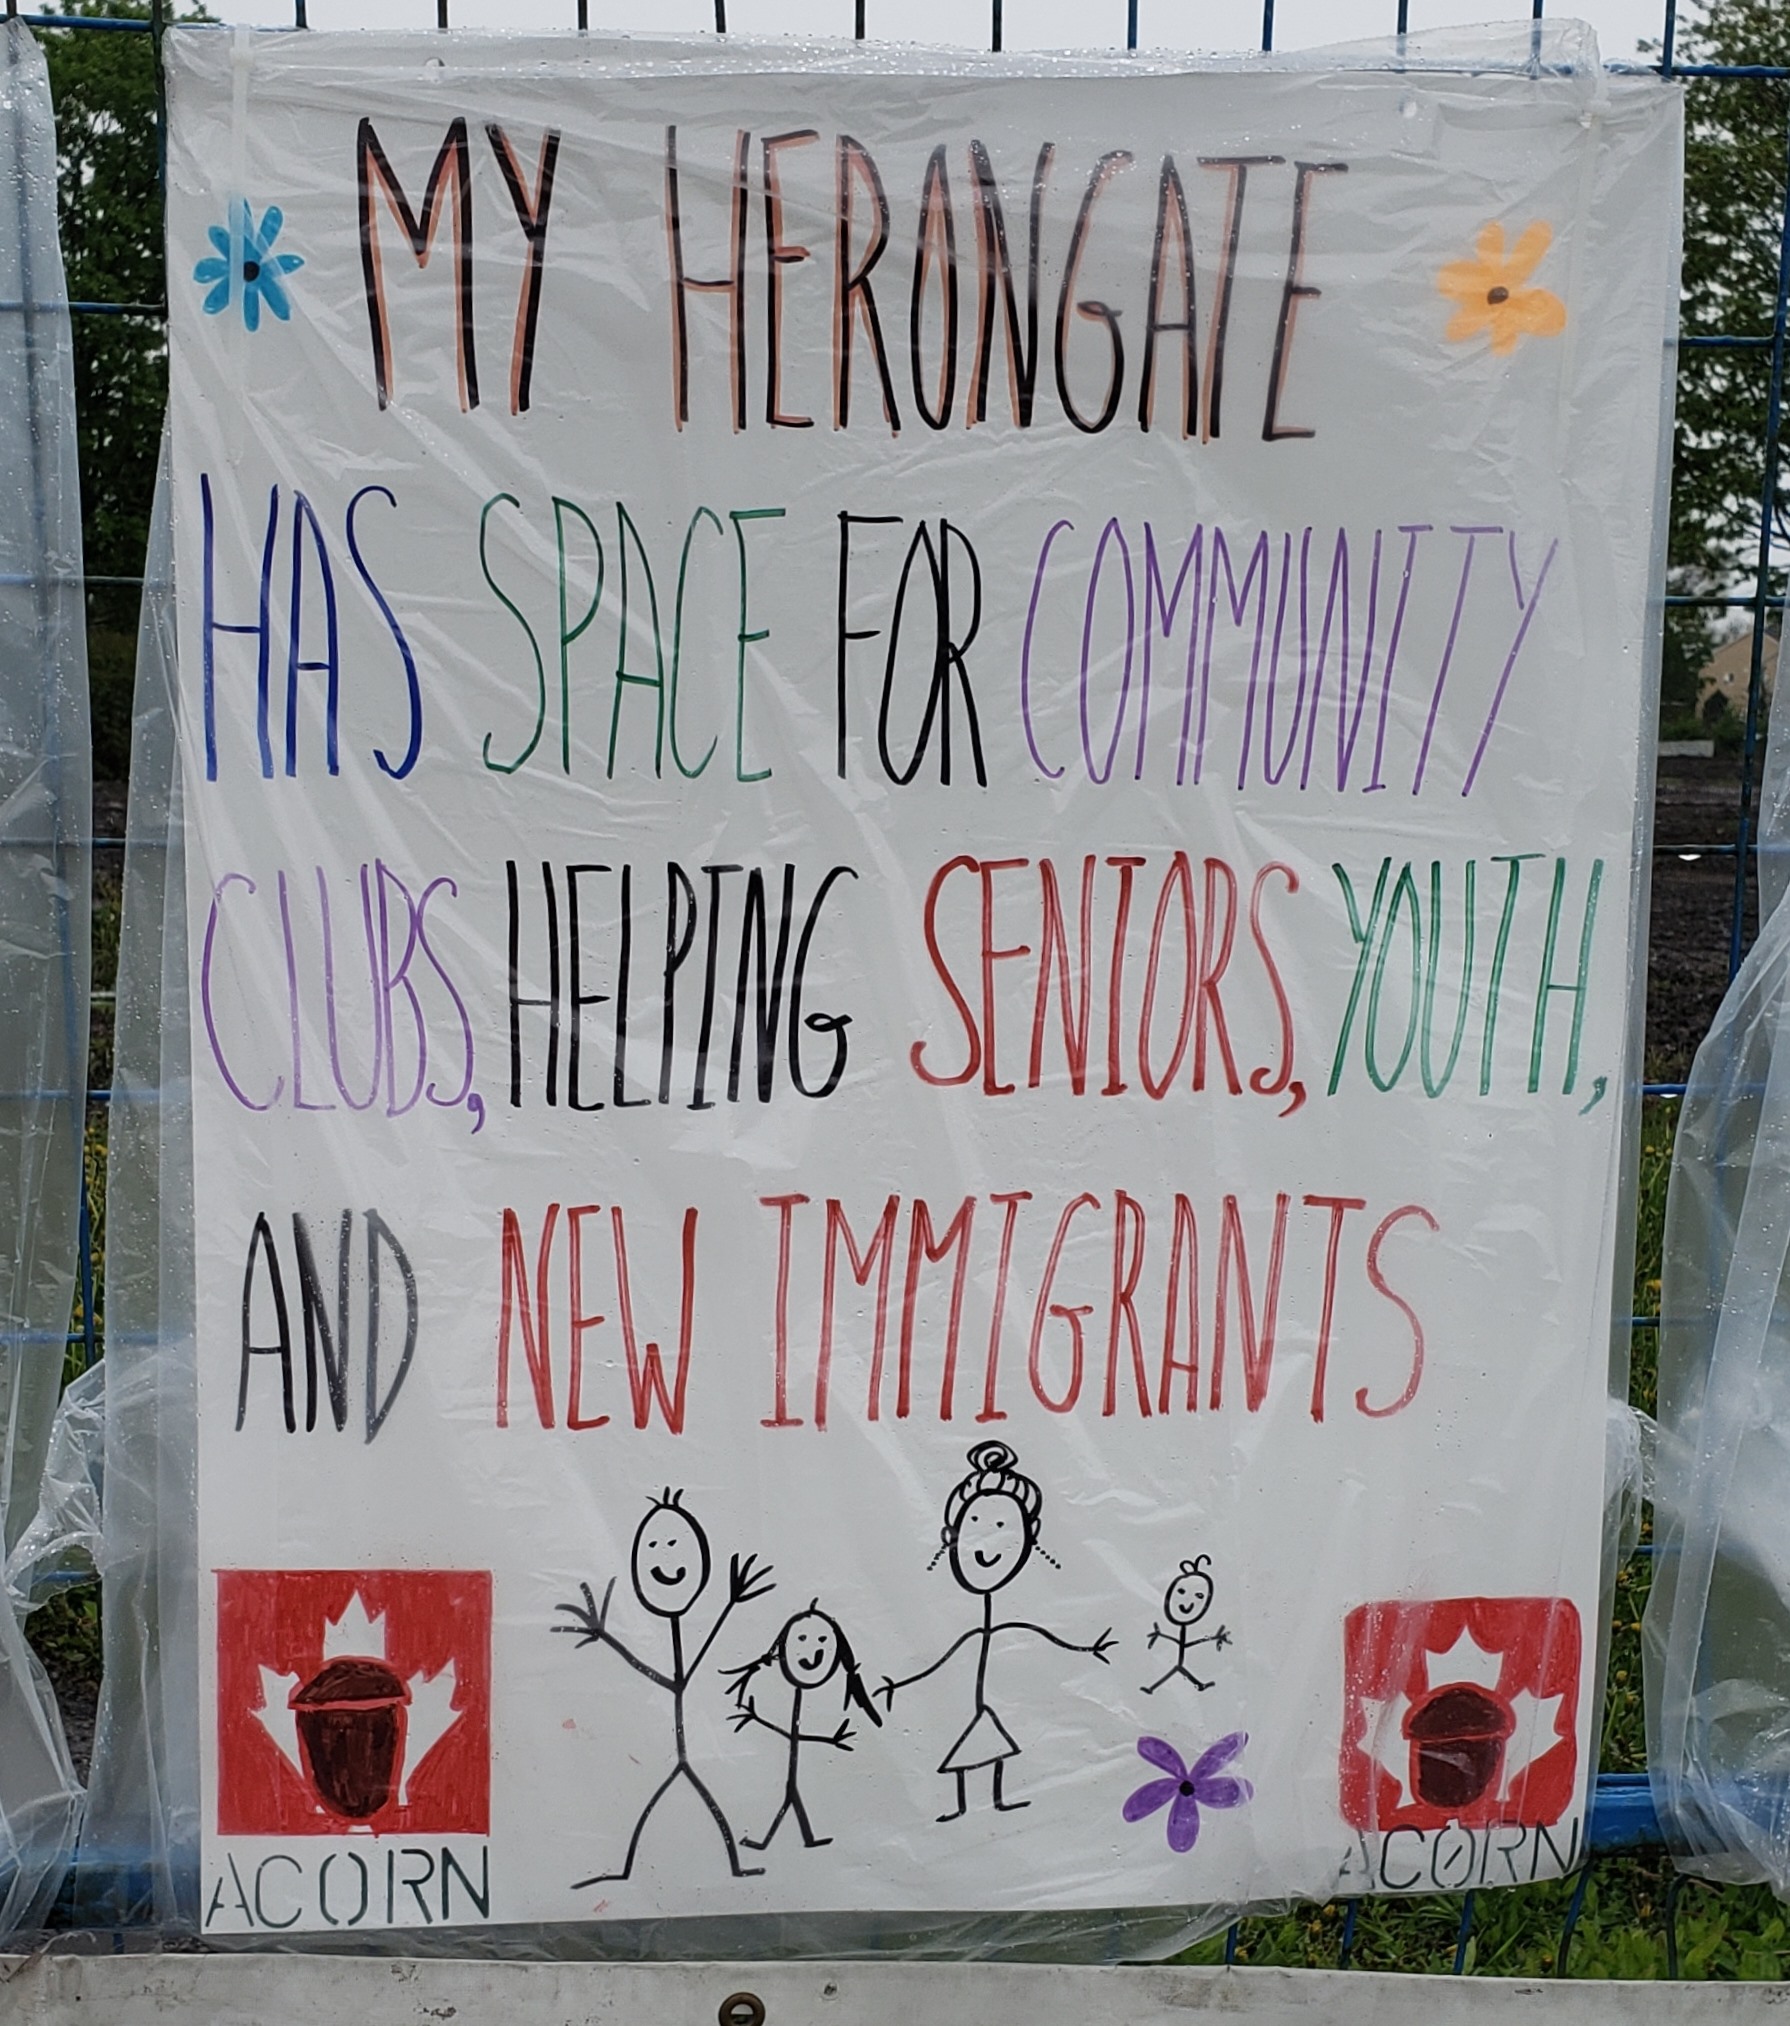 MY HERONGATE
HAS SPACE FOR COMMUNITY
CLUBS, HELPING SENIORS, YOUTH,
AND NEW IMMIGRANTS
ACORN
ACORN